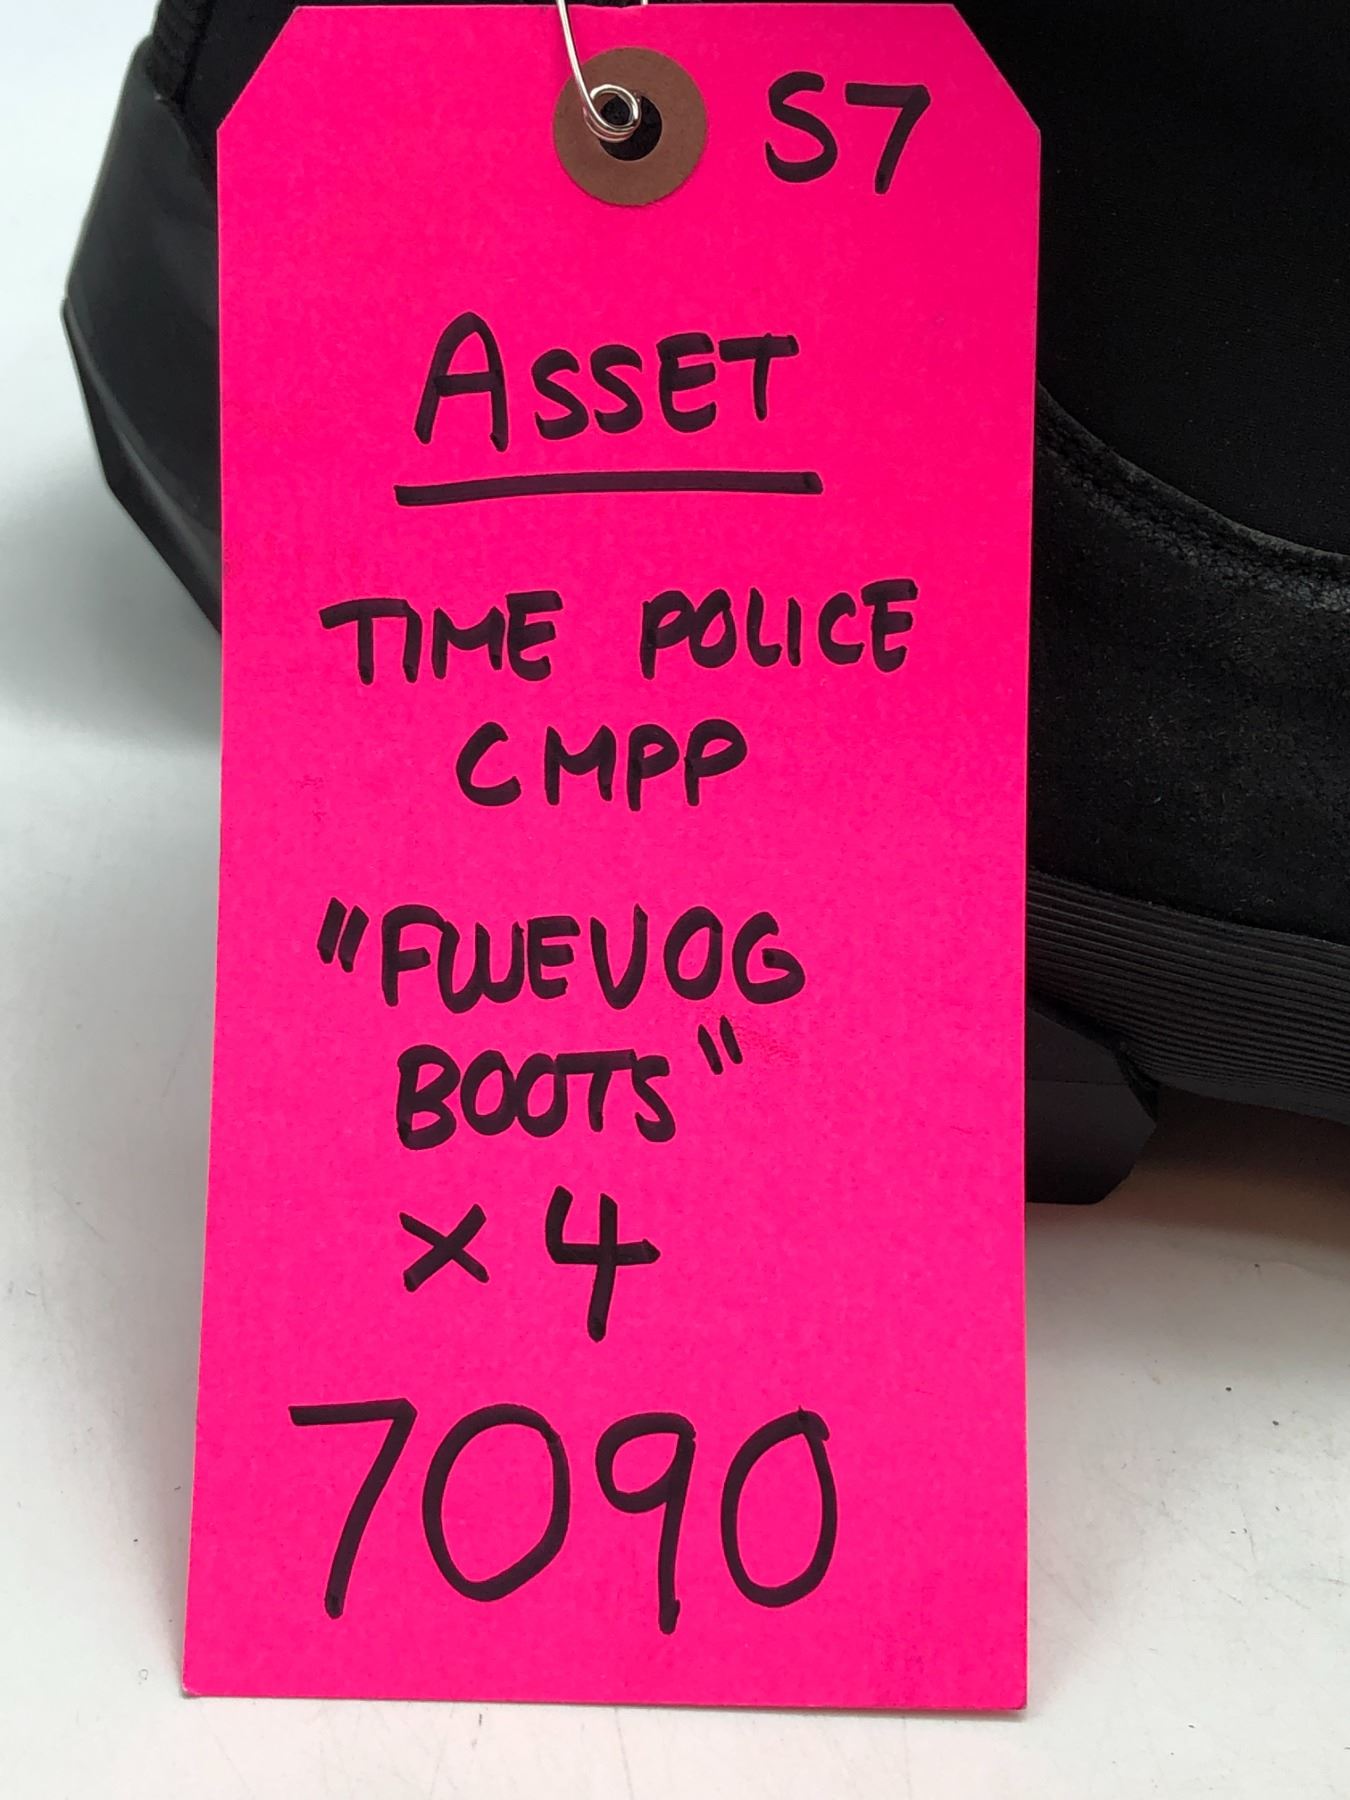 S7
ASSET
TIME POLICE
CMPP
"FWEVOG
BOOTS"
x 4
7090